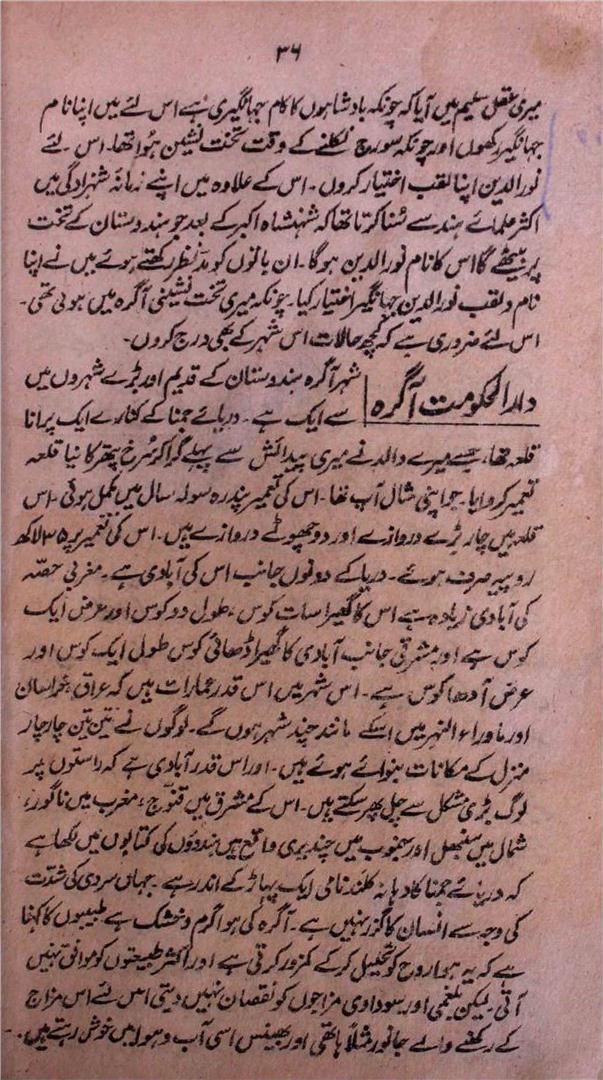 ۳۶
میری عقل سلیم میں آیا کہ چونکہ بادشاہوں کا کام جہانگیری ہے اس لئے میں اپنا نام
جہانگیر رکھوں اور چونکہ سورج نکلنے کے وقت تخت نشین ہوا تھا۔ اس لئے
نورالدین اپنا لقب اختیار کروں۔ اس کے علاوہ میں اپنے زمانۂ شہزادگی میں
اکثر علمائے ہند سے سُنا کرتا تھا کہ شہنشاہ اکبر کے بعد جو ہندوستان کے تخت
پر بیٹھے گا اس کا نام نورالدین ہوگا۔ ان باتوں کو مدّنظر رکھتے ہوئے میں نے اپنا
نام و لقب نورالدین جہانگیر اختیار کیا۔ چونکہ میری تخت نشینی آگرہ میں ہوئی تھی۔
اس لئے ضروری ہے کہ کچھ حالات اس شہر کے بھی درج کروں۔
دارالحکومت آگرہ شہر آگرہ ہندوستان کے قدیم اور بڑے شہروں میں
سے ایک ہے۔ دریائے جمنا کے کنارے ایک پرانا
قلعہ تھا، جسے میرے والد نے میری پیدائش سے پہلے گرا کر سُرخ پتھر کا نیا قلعہ
تعمیر کروایا۔ جو اپنی مثال آپ تھا۔ اس کی تعمیر پندرہ سولہ سال میں مکمل ہوئی۔ اس
قلعہ میں چار بڑے دروازے اور دو چھوٹے دروازے ہیں۔ اس کی تعمیر پر ۳۵ لاکھ
روپیہ صرف ہوئے۔ دریا کے دونوں جانب اس کی آبادی ہے۔ مغربی حصّہ
کی آبادی زیادہ ہے اس کا گھیرا سات کوس، طول دو کوس اور عرض ایک
کوس ہے اور مشرقی جانب آبادی کا گھیرا ڈھائی کوس طول ایک کوس اور
عرض آدھا کوس ہے۔ اس شہر میں اس قدر عمارات ہیں کہ عراق، خراسان
اور ماوراء النہر میں اسکے مانند چند شہر ہوں گے۔ لوگوں نے تین تین چار چار
منزل کے مکانات بنوائے ہوئے ہیں۔ اور اس قدر آبادی ہے کہ راستوں پر
لوگ بڑی مشکل سے چل پھر سکتے ہیں۔ اس کے مشرق میں قنّوج، مغرب میں ناگور،
شمال میں سنبھل اور جنوب میں چندیری واقع ہیں ہندوؤں کی کتابوں میں لکھا ہے
کہ دریائے جمنا کا دہانہ کلند نامی ایک پہاڑ کے اندر ہے۔ جہاں سردی کی شدّت
کی وجہ سے انسان کا گزر نہیں ہے۔ آگرہ کی ہوا گرم و خشک ہے طبیبوں کا کہنا
ہے کہ یہ ہوا روح کو تحلیل کر کے کمزور کرتی ہے اور اکثر طبیعتوں کو موافق نہیں
آتی۔ لیکن بلغمی اور سوداوی مزاجوں کو نقصان نہیں دیتی اس لئے اس مزاج
کے رکھنے والے جانور مثلاً ہاتھی اور بھینس اسی آب و ہوا میں خوش رہتے ہیں۔